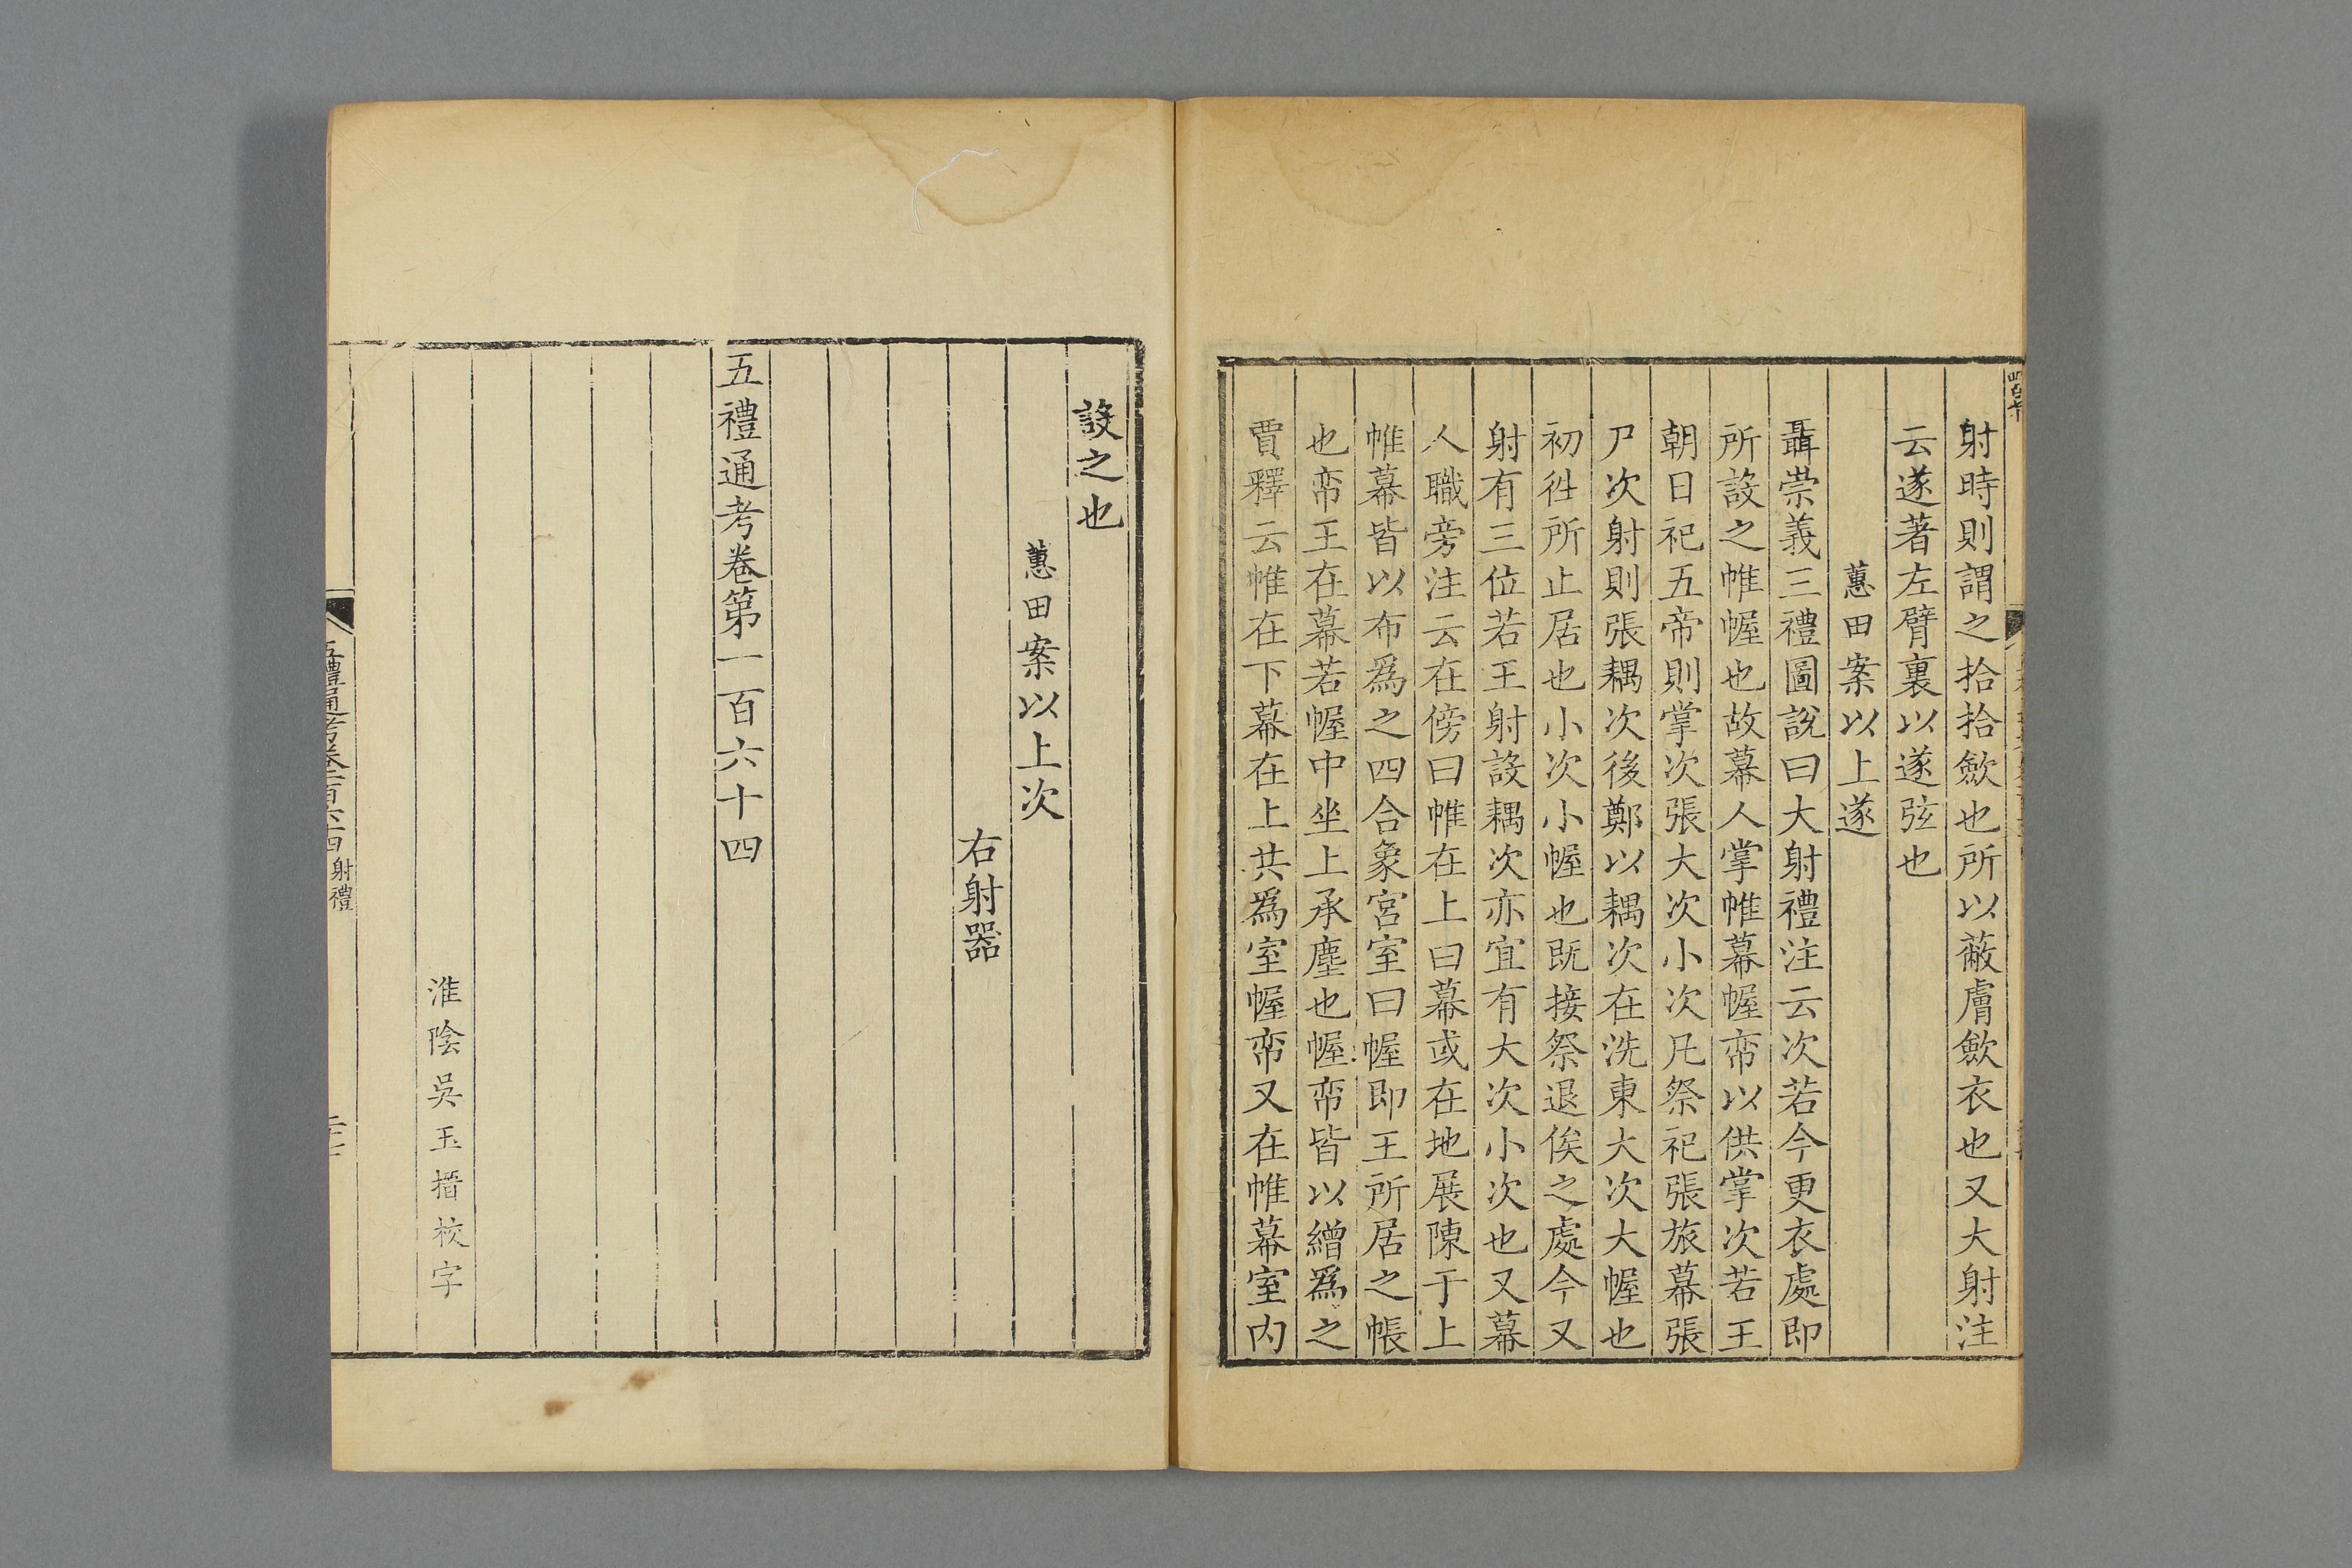 射時則謂之拾拾斂也所以蔽膚斂衣也又大射注
云遂著左臂裏以遂弦也
蕙田案以上遂
聶崇義三禮圖說曰大射禮注云次若今更衣處即
所設之帷幄也故幕人掌帷幕幄帟以供掌次若王
朝日祀五帝則掌次張大次小次凡祭祀張旅幕張
尸次射則張耦次後鄭以耦次在洗東大次大幄也
初徃所止居也小次小幄也既接祭退俟之處今又
射有三位若王射設耦次亦宜有大次小次也又幕
人職旁注云在傍曰帷在上曰幕或在地展陳于上
帷幕皆以布爲之四合象宮室曰幄即王所居之帳
也帟王在幕若幄中坐上承塵也幄帟皆以繒爲之
賈釋云帷在下幕在上共爲室幄帟又在帷幕室內
設之也
蕙田案以上次
右射器
五禮通考卷第一百六十四
淮陰吳玉搢校字
五禮通考卷一百六十四 射禮